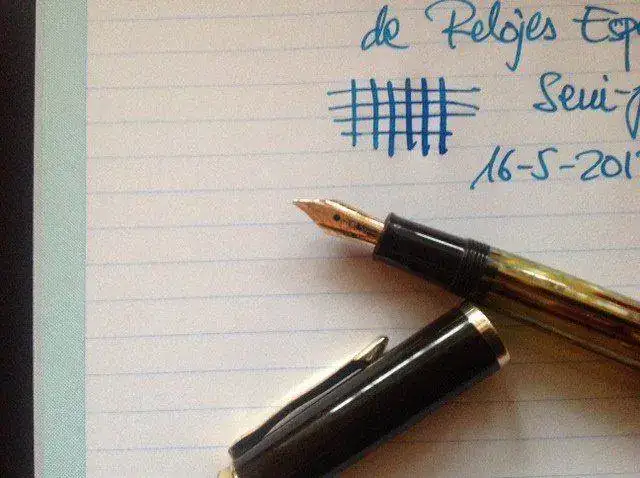 de Relojes Esp
Semi-p
16-5-201